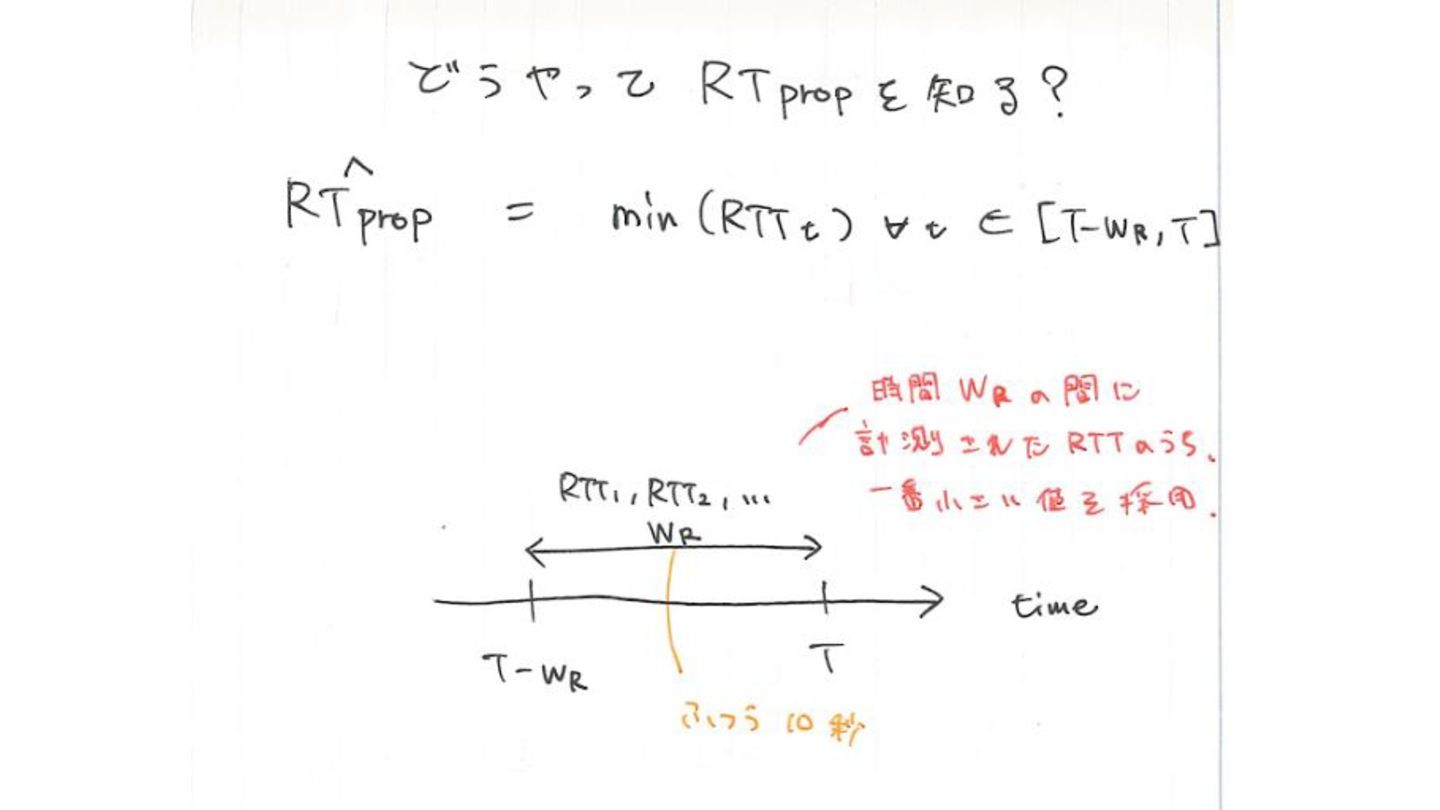 どうやって RTpropを知る?
RT^prop = min (RTTt) ∀t ∈ [T-WR, T]
時間 WR の間に
計測された RTTのうち、
一番小さい値を採用.
RTT1, RTT2, ...
WR
time
T-WR
T
ふつう 10秒